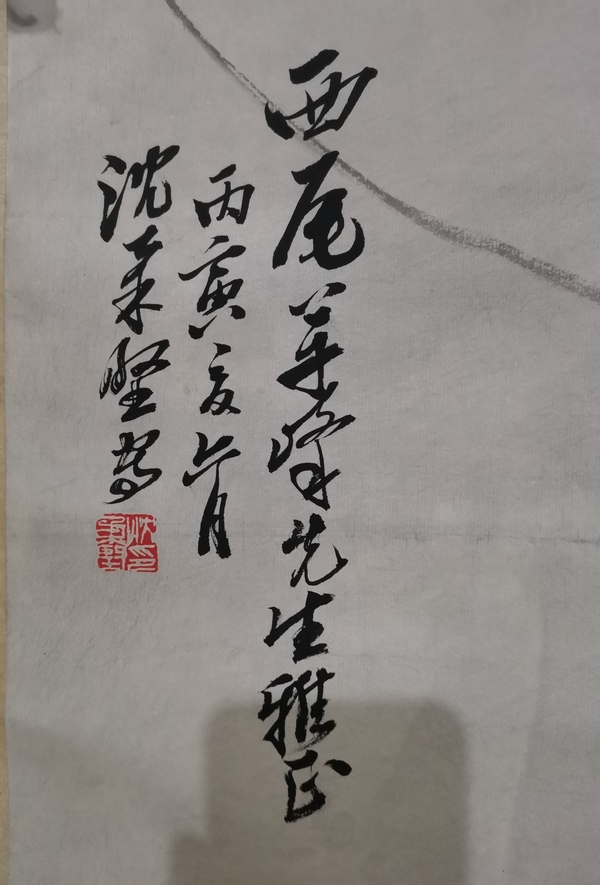 西尾峰先生雅正
丙寅夏六月
沈柔坚写
沈印柔堅